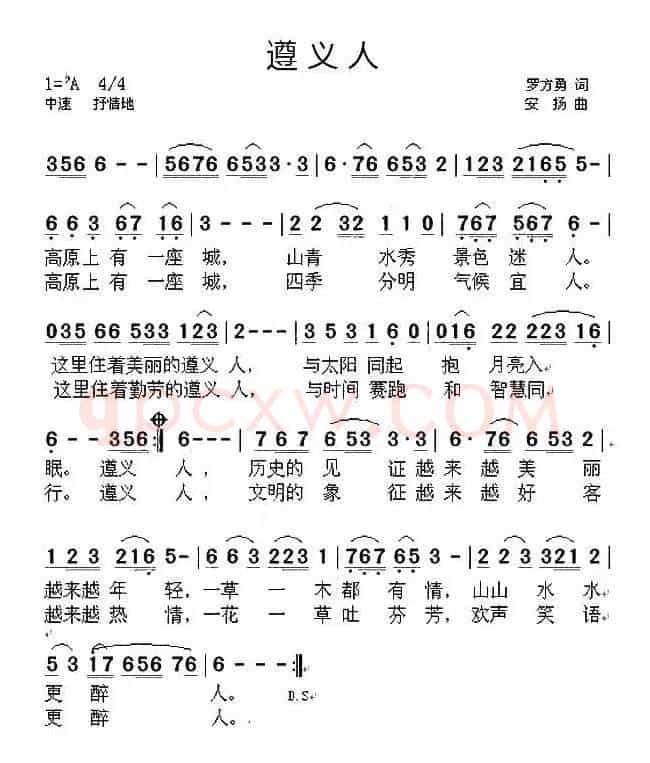 遵义人
1=♭A 4/4 罗方勇 词
中速 抒情地 安扬 曲
356 6 - - | 5676 6533 3·3 | 6·76 653 2 | 123 2165 5- |
6 6 3 67 16 | 3 - - - | 2 2 32 1 1 0 | 767 567 6 - |
高原上有一座城， 山青 水秀 景色迷 人。
高原上有一座城， 四季 分明 气候宜 人。
035 66 533 123 | 2--- | 3 5 3 1 6 0 | 016 22 223 16 |
这里住着美丽的遵义人， 与太阳同起 抱 月亮入
这里住着勤劳的遵义人， 与时间赛跑 和 智慧同
6 - - 356 :|| 6--- | 7 6 7 6 53 3·3 | 6·76 6 53 2 |
眠。遵义 人， 历史的见 证越来越美 丽
行。遵义 人， 文明的象 征越来越好 客
1 2 3 216 5- | 6 6 3 223 1 | 767 65 3 - | 2 2 3 321 2 |
越来越年 轻，一草一 木都有情，山山水水
越来越热 情，一花一 草吐芬芳，欢声笑语
5 3 17 656 76 | 6 - - - :||
更 醉 人。 D.S
更 醉 人。
qpcxw.com